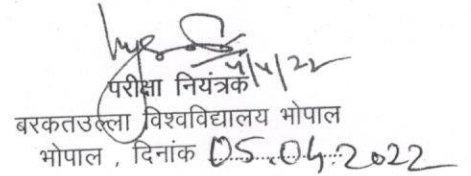 4/4/22
परीक्षा नियंत्रक
बरकतउल्ला विश्वविद्यालय भोपाल
भोपाल , दिनांक 05.04.2022